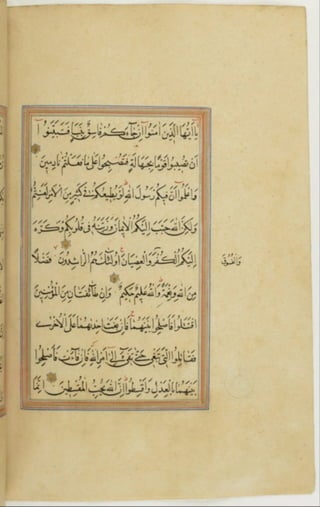 يَا أَيُّهَا الَّذِينَ آمَنُوا إِن جَاءَكُمْ فَاسِقٌ بِنَبَإٍ فَتَبَيَّنُوا
أَن تُصِيبُوا قَوْمًا بِجَهَالَةٍ فَتُصْبِحُوا عَلَى مَا فَعَلْتُمْ نَادِمِينَ
وَاعْلَمُوا أَنَّ فِيكُمْ رَسُولَ اللَّهِ لَوْ يُطِيعُكُمْ فِي كَثِيرٍ مِنَ الْأَمْرِ لَعَنِتُّمْ
وَلَكِنَّ اللَّهَ حَبَّبَ إِلَيْكُمُ الْإِيمَانَ وَزَيَّنَهُ فِي قُلُوبِكُمْ وَكَرَّهَ
إِلَيْكُمُ الْكُفْرَ وَالْعِصْيَانَ أُولَئِكَ هُمُ الرَّاشِدُونَ فَضْلًا
وَالْفُسُوقَ
مِنَ اللَّهِ وَنِعْمَةً وَاللَّهُ عَلِيمٌ حَكِيمٌ وَإِن طَائِفَتَانِ مِنَ الْمُؤْمِنِينَ
اقْتَتَلُوا فَأَصْلِحُوا بَيْنَهُمَا فَإِن بَغَتْ إِحْدَاهُمَا عَلَى الْأُخْرَى
فَقَاتِلُوا الَّتِي تَبْغِي حَتَّى تَفِيءَ إِلَى أَمْرِ اللَّهِ فَإِن فَاءَتْ فَأَصْلِحُوا
بَيْنَهُمَا بِالْعَدْلِ وَأَقْسِطُوا إِنَّ اللَّهَ يُحِبُّ الْمُقْسِطِينَ إِنَّمَا